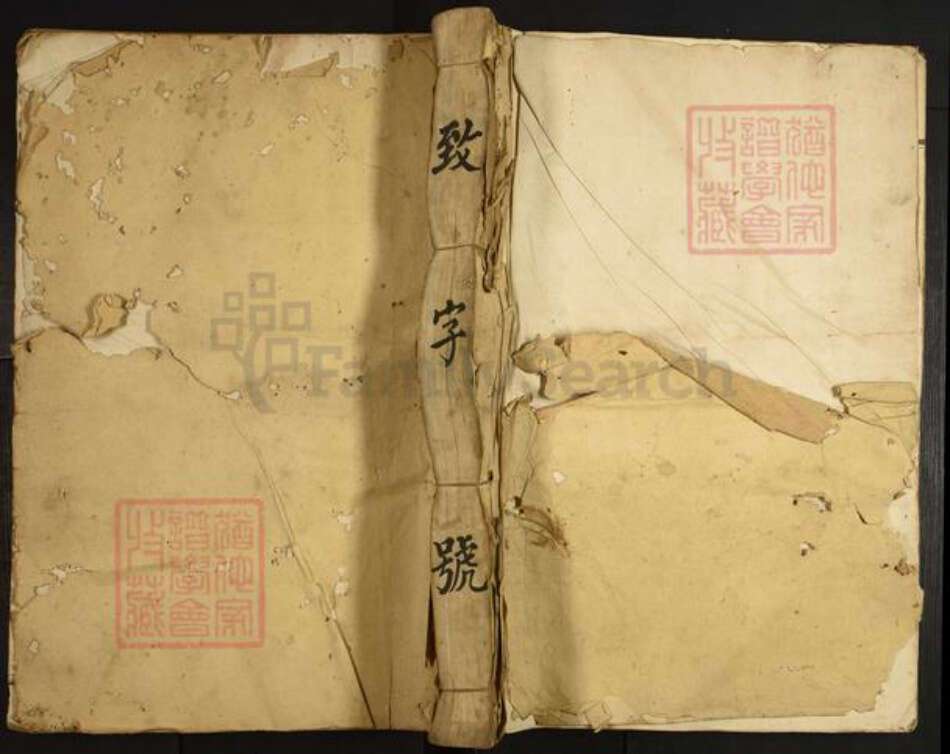 致字號
猶他家
譜學會
收藏
猶他家
譜學會
收藏
FamilySearch